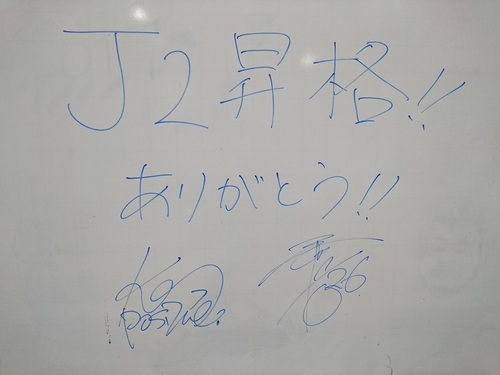 J2昇格!!
ありがとう!!